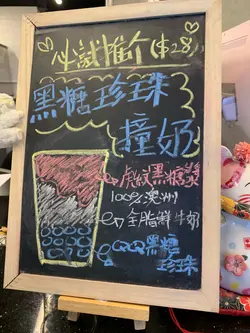 必試推介($28)
黑糖珍珠
撞奶
虎紋黑糖漿
100%澳洲
全脂鮮牛奶
QQ黑糖
珍珠